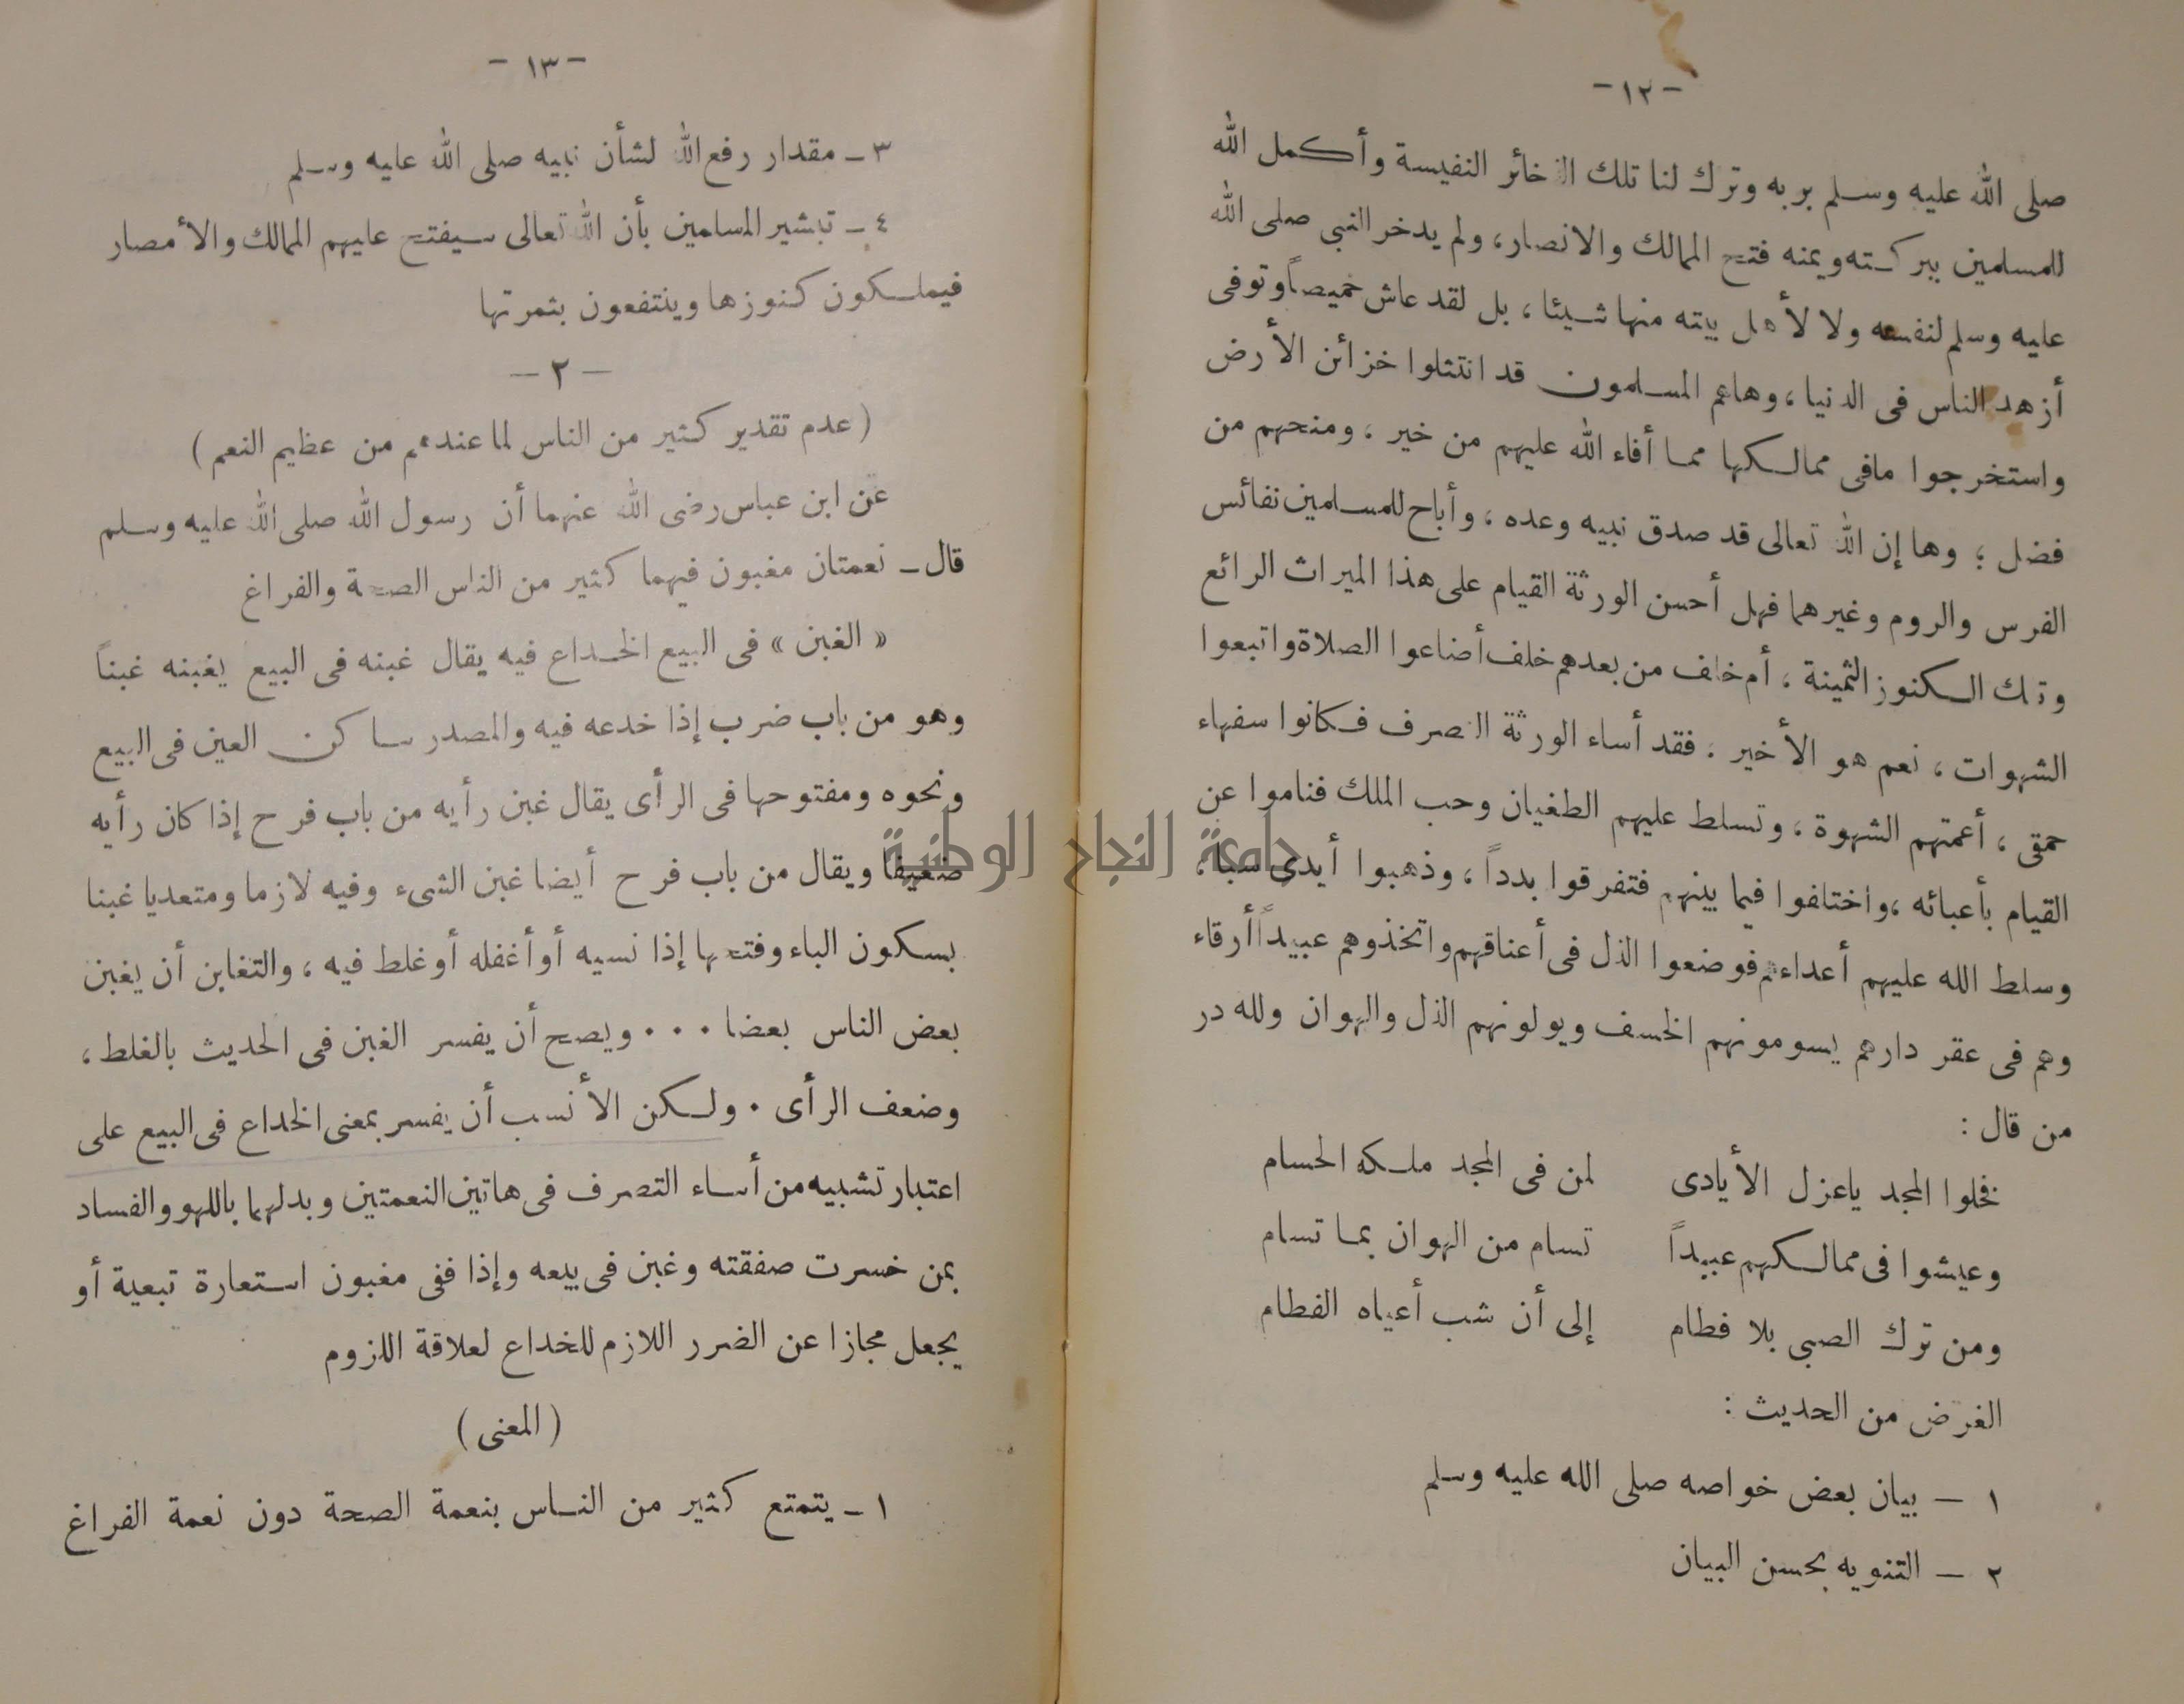 - ١٢ -
صلى الله عليه وسلم بربه وترك لنا تلك الذخائر النفيسة وأكمل الله
للمسلمين ببركته ويمنه فتح الممالك والانصار، ولم يدخر النبي صلى الله
عليه وسلم لنفسه ولا لأهل بيته منها شيئا ، بل لقد عاش خميصاً وتوفى
أزهد الناس فى الدنيا ، وهاهم المسلمون قد انتثلوا خزائن الأرض
واستخرجوا مافى ممالكها مما أفاء الله عليهم من خير ، ومنحهم من
فضل ؛ وها إن الله تعالى قد صدق نبيه وعده ، وأباح للمسلمين نفائس
الفرس والروم وغيرهما فهل أحسن الورثة القيام على هذا الميراث الرائع
وتلك الكنوز الثمينة ، أم خلف من بعدهم خلف أضاعوا الصلاة واتبعوا
الشهوات ، نعم هو الأخير . فقد أساء الورثة التصرف فكانوا سفهاء
حمقى ، أعمتهم الشهوة ، وتسلط عليهم الطغيان وحب الملك فناموا عن
القيام بأعبائه ، واختلفوا فيما بينهم فتفرقوا بدداً ، وذهبوا أيدى سبا ،
وسلط الله عليهم أعداءهم فوضعوا الذل فى أعناقهم واتخذوهم عبيداً أرقاء
وهم فى عقر دارهم يسومونهم الخسف ويولونهم الذل والهوان ولله در
من قال :
فخلوا المجد ياعزل الأيادى لمن فى المجد ملكه الحسام
وعيشوا فى ممالكهم عبيداً تسام من الهوان بما تسام
ومن ترك الصبى بلا فطام إلى أن شب أعياه الفطام
الغرض من الحديث :
١ - بيان بعض خواصه صلى الله عليه وسلم
٢ - التنويه بحسن البيان
- ١٣ -
٣ - مقدار رفع الله لشأن نبيه صلى الله عليه وسلم
٤ - تبشير المسلمين بأن الله تعالى سيفتح عليهم الممالك والأمصار
فيملكون كنوزها وينتفعون بثمرتها
- ٢ -
( عدم تقدير كثير من الناس لما عندهم من عظيم النعم )
عن ابن عباس رضى الله عنهما أن رسول الله صلى الله عليه وسلم
قال - نعمتان مغبون فيهما كثير من الناس الصحة والفراغ
« الغبن » فى البيع الخداع فيه يقال غبنه فى البيع يغبنه غبناً
وهو من باب ضرب إذا خدعه فيه والمصدر ساكن العين فى البيع
ونحوه ومفتوحها فى الرأى يقال غبن رأيه من باب فرح إذا كان رأيه
ضعيفا ويقال من باب فرح أيضا غبن الشىء وفيه لازما ومتعديا غبنا
بسكون الباء وفتحها إذا نسيه أو أغفله أو غلط فيه ، والتغابن أن يغبن
بعض الناس بعضا . . . ويصح أن يفسر الغبن فى الحديث بالغلط ،
وضعف الرأى . ولكن الأنسب أن يفسر بمعنى الخداع فى البيع على
اعتبار تشبيه من أساء التصرف فى هاتين النعمتين وبدلهما باللهو والفساد
بمن خسرت صفقته وغبن فى بيعه وإذا ففى مغبون استعارة تبعية أو
يجعل مجازا عن الضرر اللازم للخداع لعلاقة اللزوم
( المعنى )
١ - يتمتع كثير من الناس بنعمة الصحة دون نعمة الفراغ
جامعة النجاح الوطنية